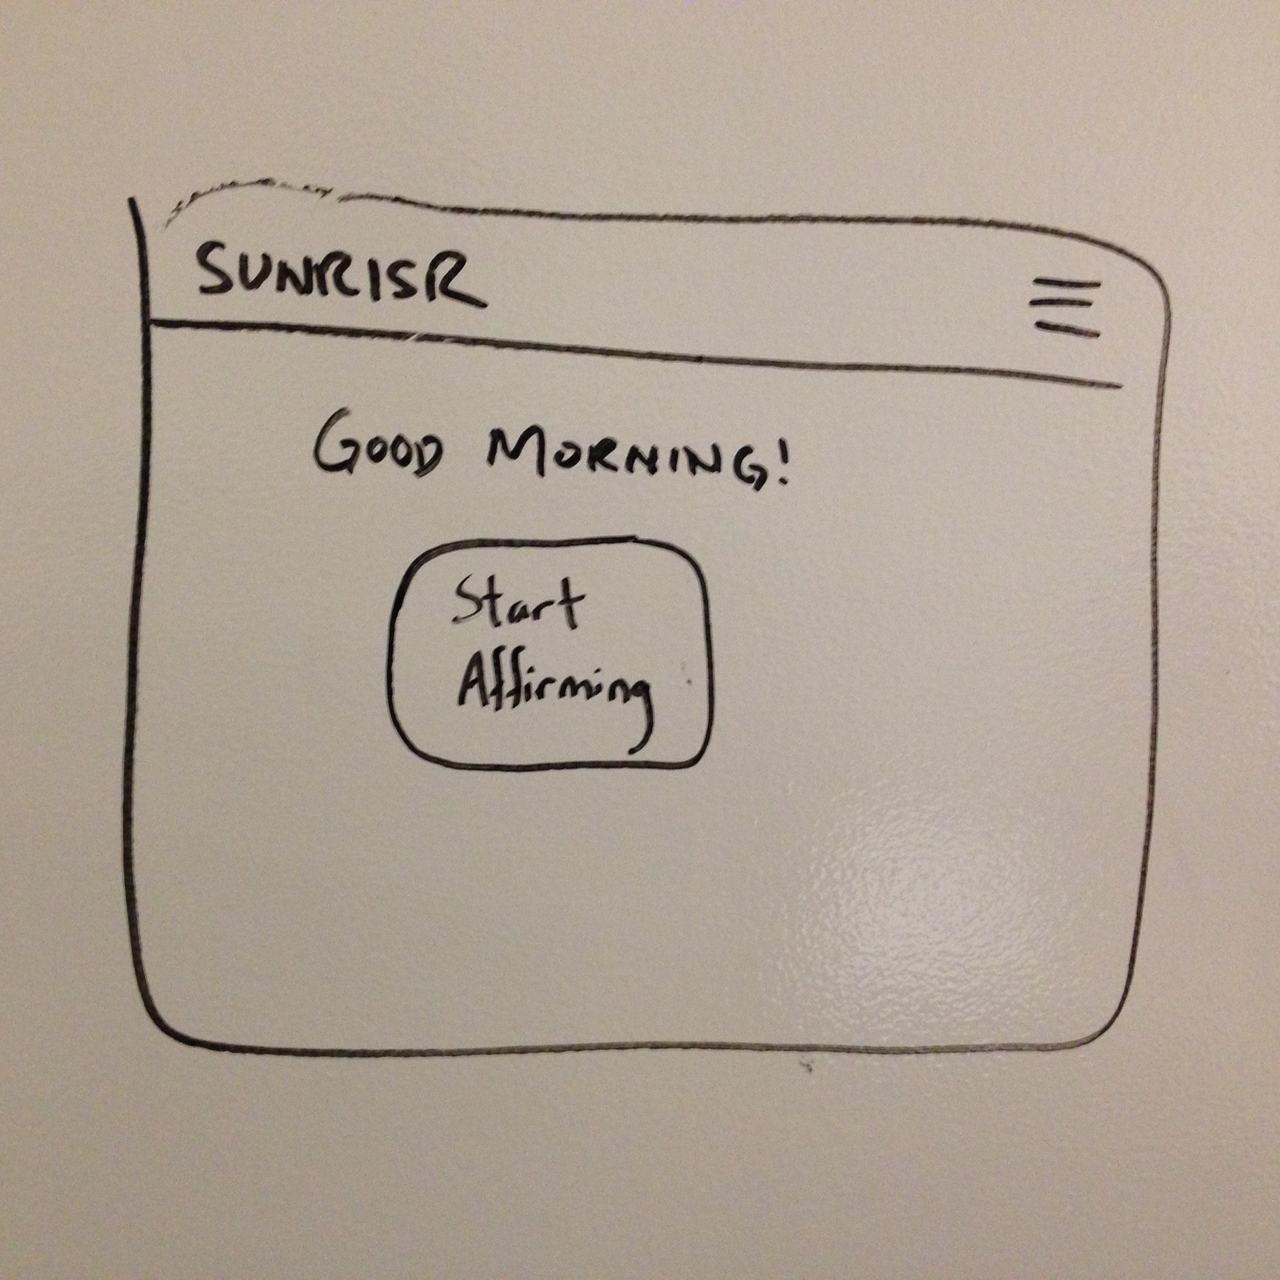 SUNRISR
GOOD MORNING!
Start
Affirming